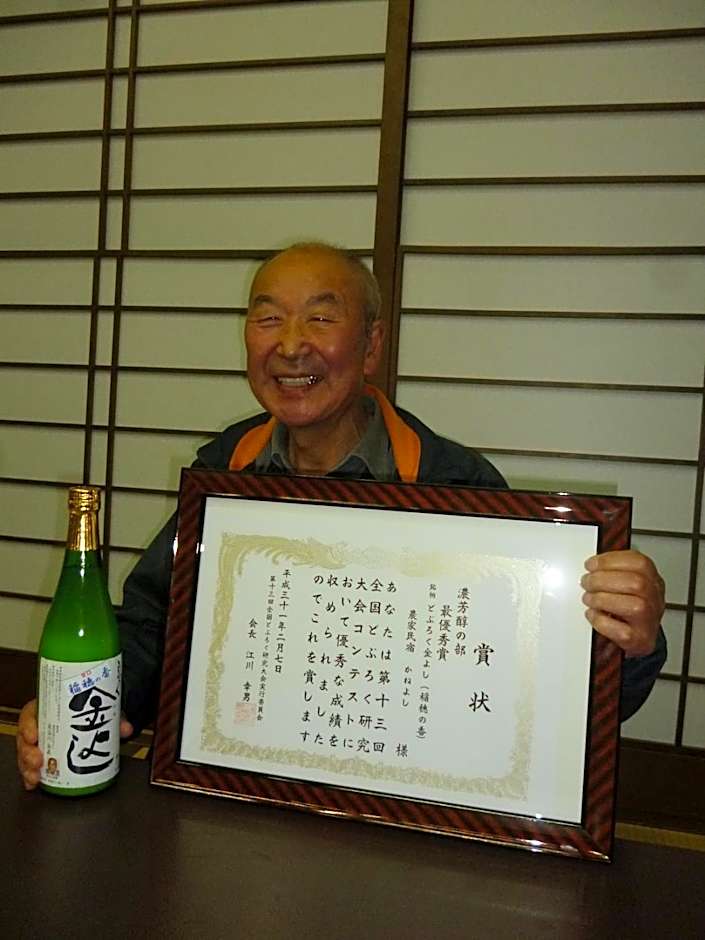 賞状
濃芳醇の部
最優秀賞
銘柄 どぶろく金よし(稲穂の香)
農家民宿 かねよし 様
あなたは第十三回
全国どぶろく研究
大会コンテストに
おいて優秀な成績を
収められました
のでこれを賞します
平成三十一年二月七日
第十三回全国どぶろく研究大会実行委員会
会長 江川 幸男
稲穂の香
金よし